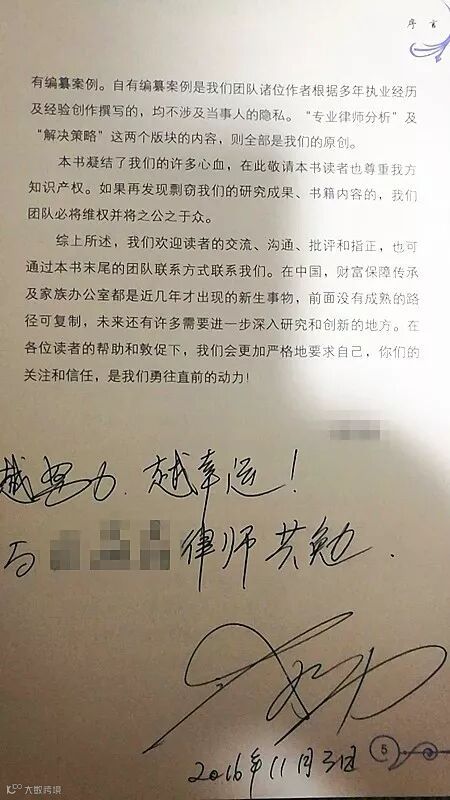 序言
有编纂案例。自有编纂案例是我们团队诸位作者根据多年执业经历
及经验创作撰写的，均不涉及当事人的隐私。“专业律师分析”及
“解决策略”这两个版块的内容，则全部是我们的原创。
本书凝结了我们的许多心血，在此敬请本书读者也尊重我方
知识产权。如果再发现剽窃我们的研究成果、书籍内容的，我们
团队必将维权并将之公之于众。
综上所述，我们欢迎读者的交流、沟通、批评和指正，也可
通过本书末尾的团队联系方式联系我们。在中国，财富保障传承
及家族办公室都是近几年才出现的新生事物，前面没有成熟的路
径可复制，未来还有许多需要进一步深入研究和创新的地方。在
各位读者的帮助和敦促下，我们会更加严格地要求自己，你们的
关注和信任，是我们勇往直前的动力！
越努力、越幸运！
与律师共勉.
2016年11月3日
5
大数跨境